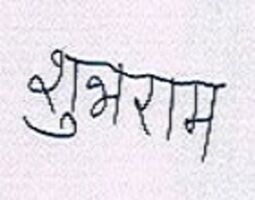 शुभराम